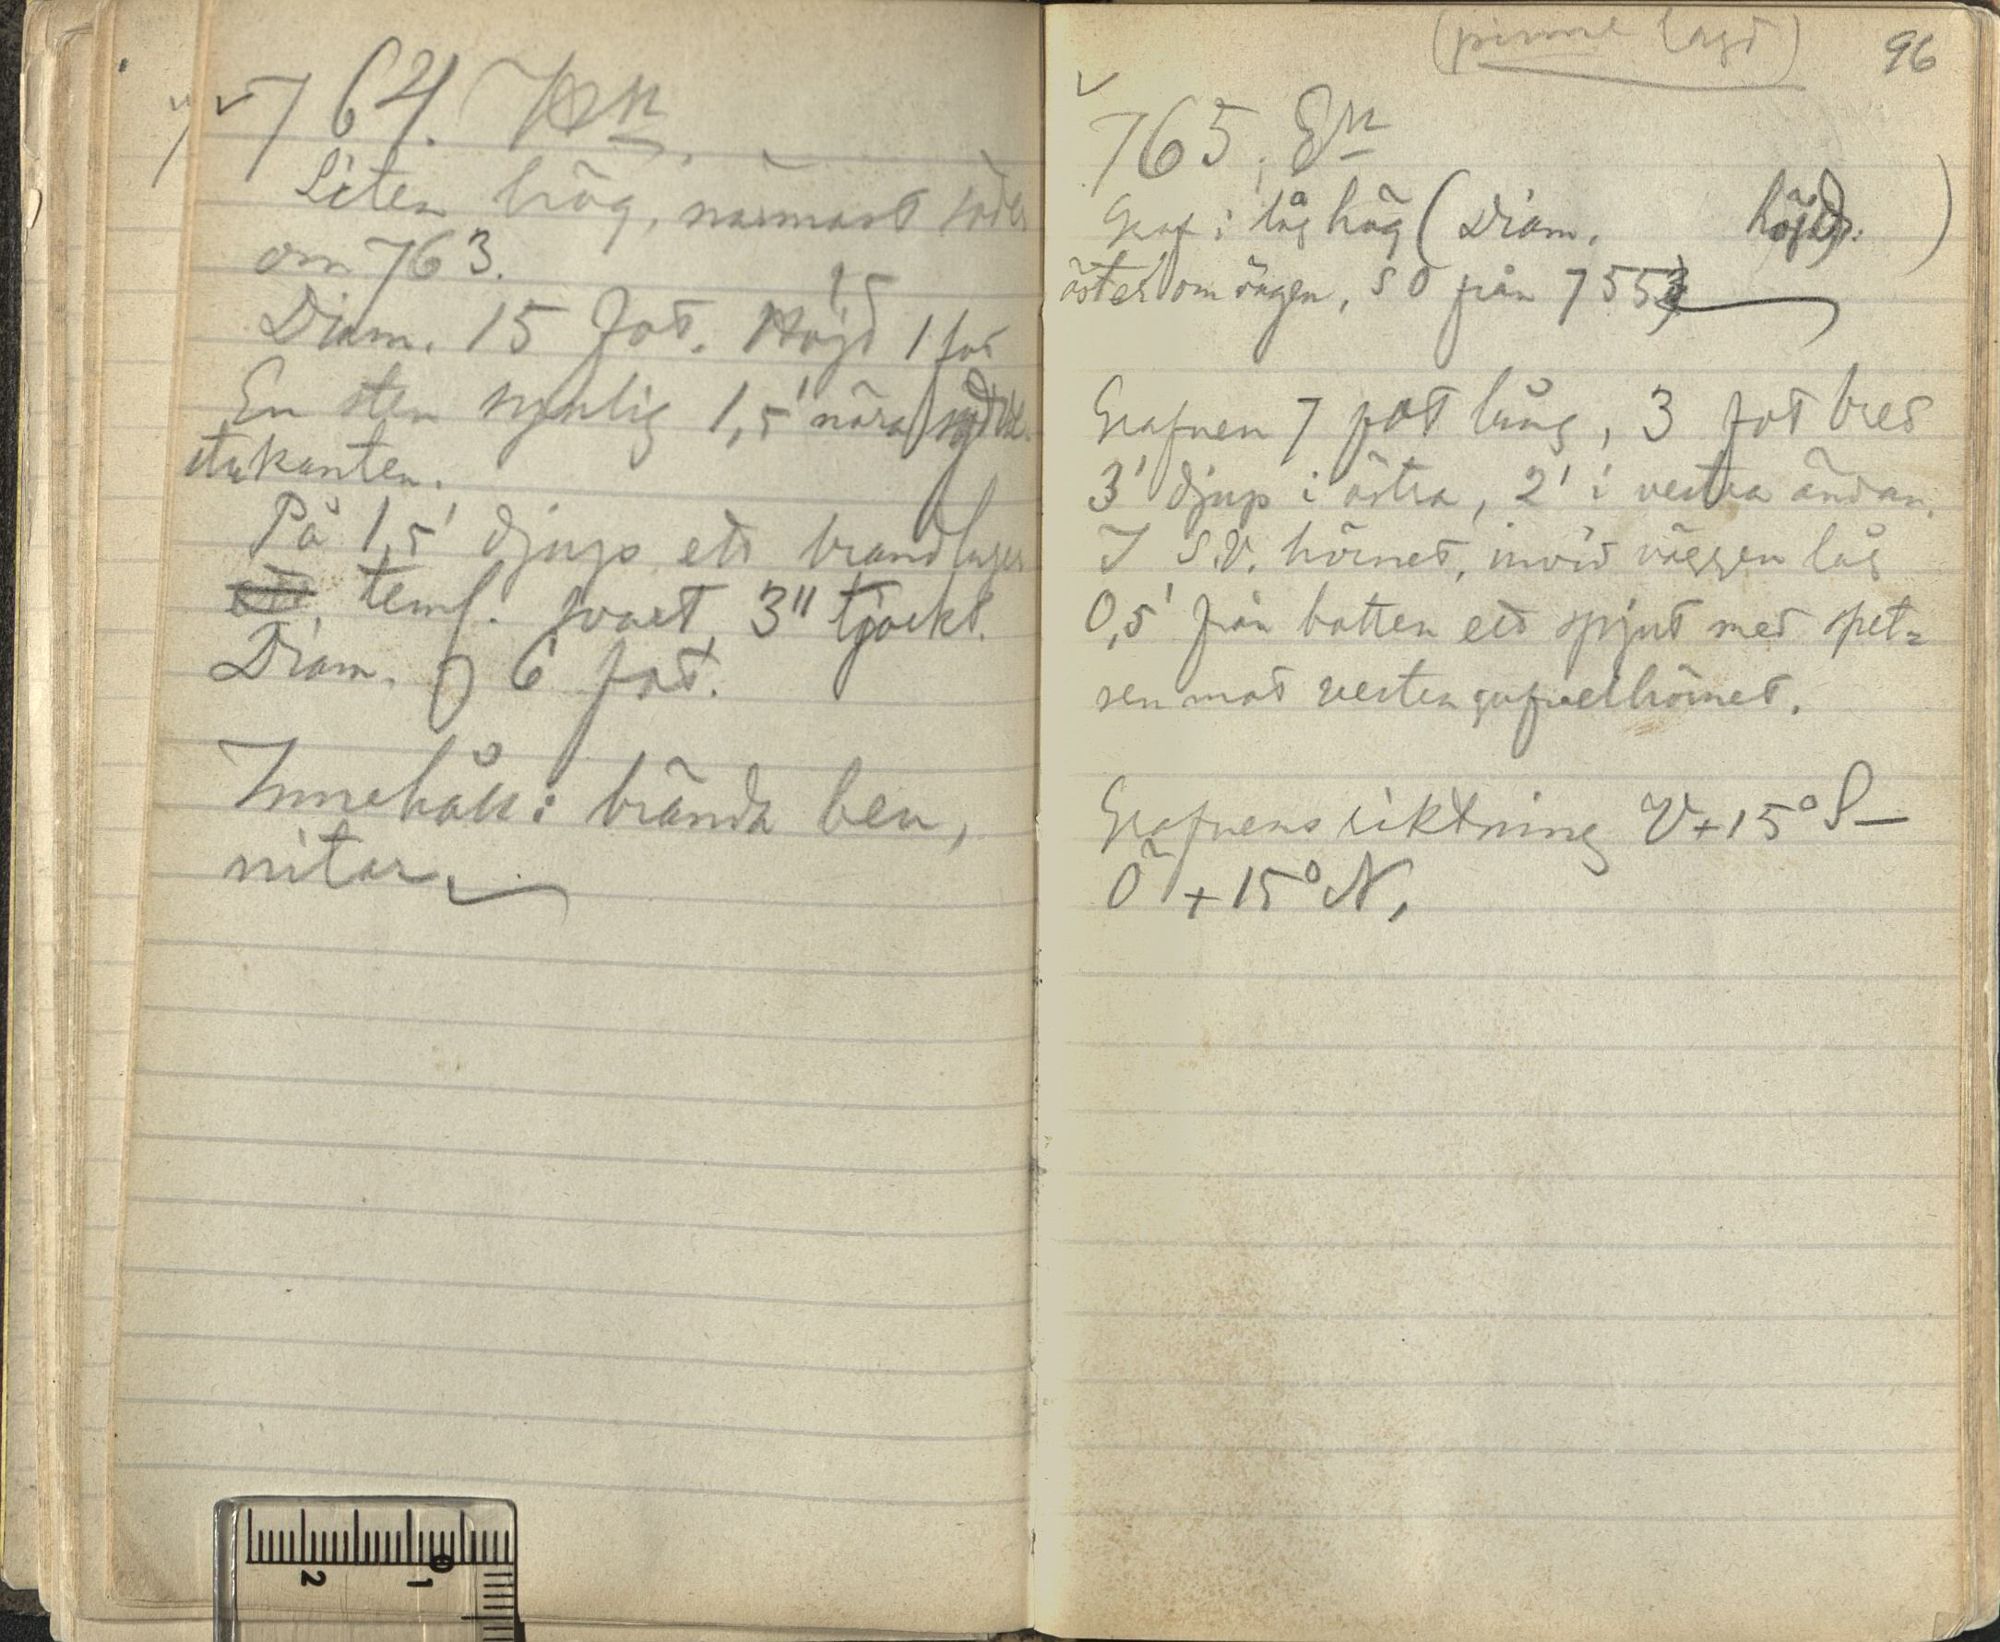 764.
Liten hög, närmast söder
om 763.
Diam. 15 fot. Höjd 1 fot
En sten synlig 1,5' nära
kanten.
På 1,5' djup ett brandlager
teml. svart, 3" tjockt.
Diam. 6 fot.
Innehåll: brända ben,
nitar.
(pinne lagd) 96
765.
Graf i låg hög (Diam. höjd. )
öster om vägen, SO från
Grafven 7 fot lång, 3 fot bred
3' djup i östra, 2' i vestra ändan.
I S.V. hörnet, invid väggen låg
0,5' från botten ett spjut med spet=
sen mot
Grafvens riktning V+15° S—
Ö +15° N.
2 1 0